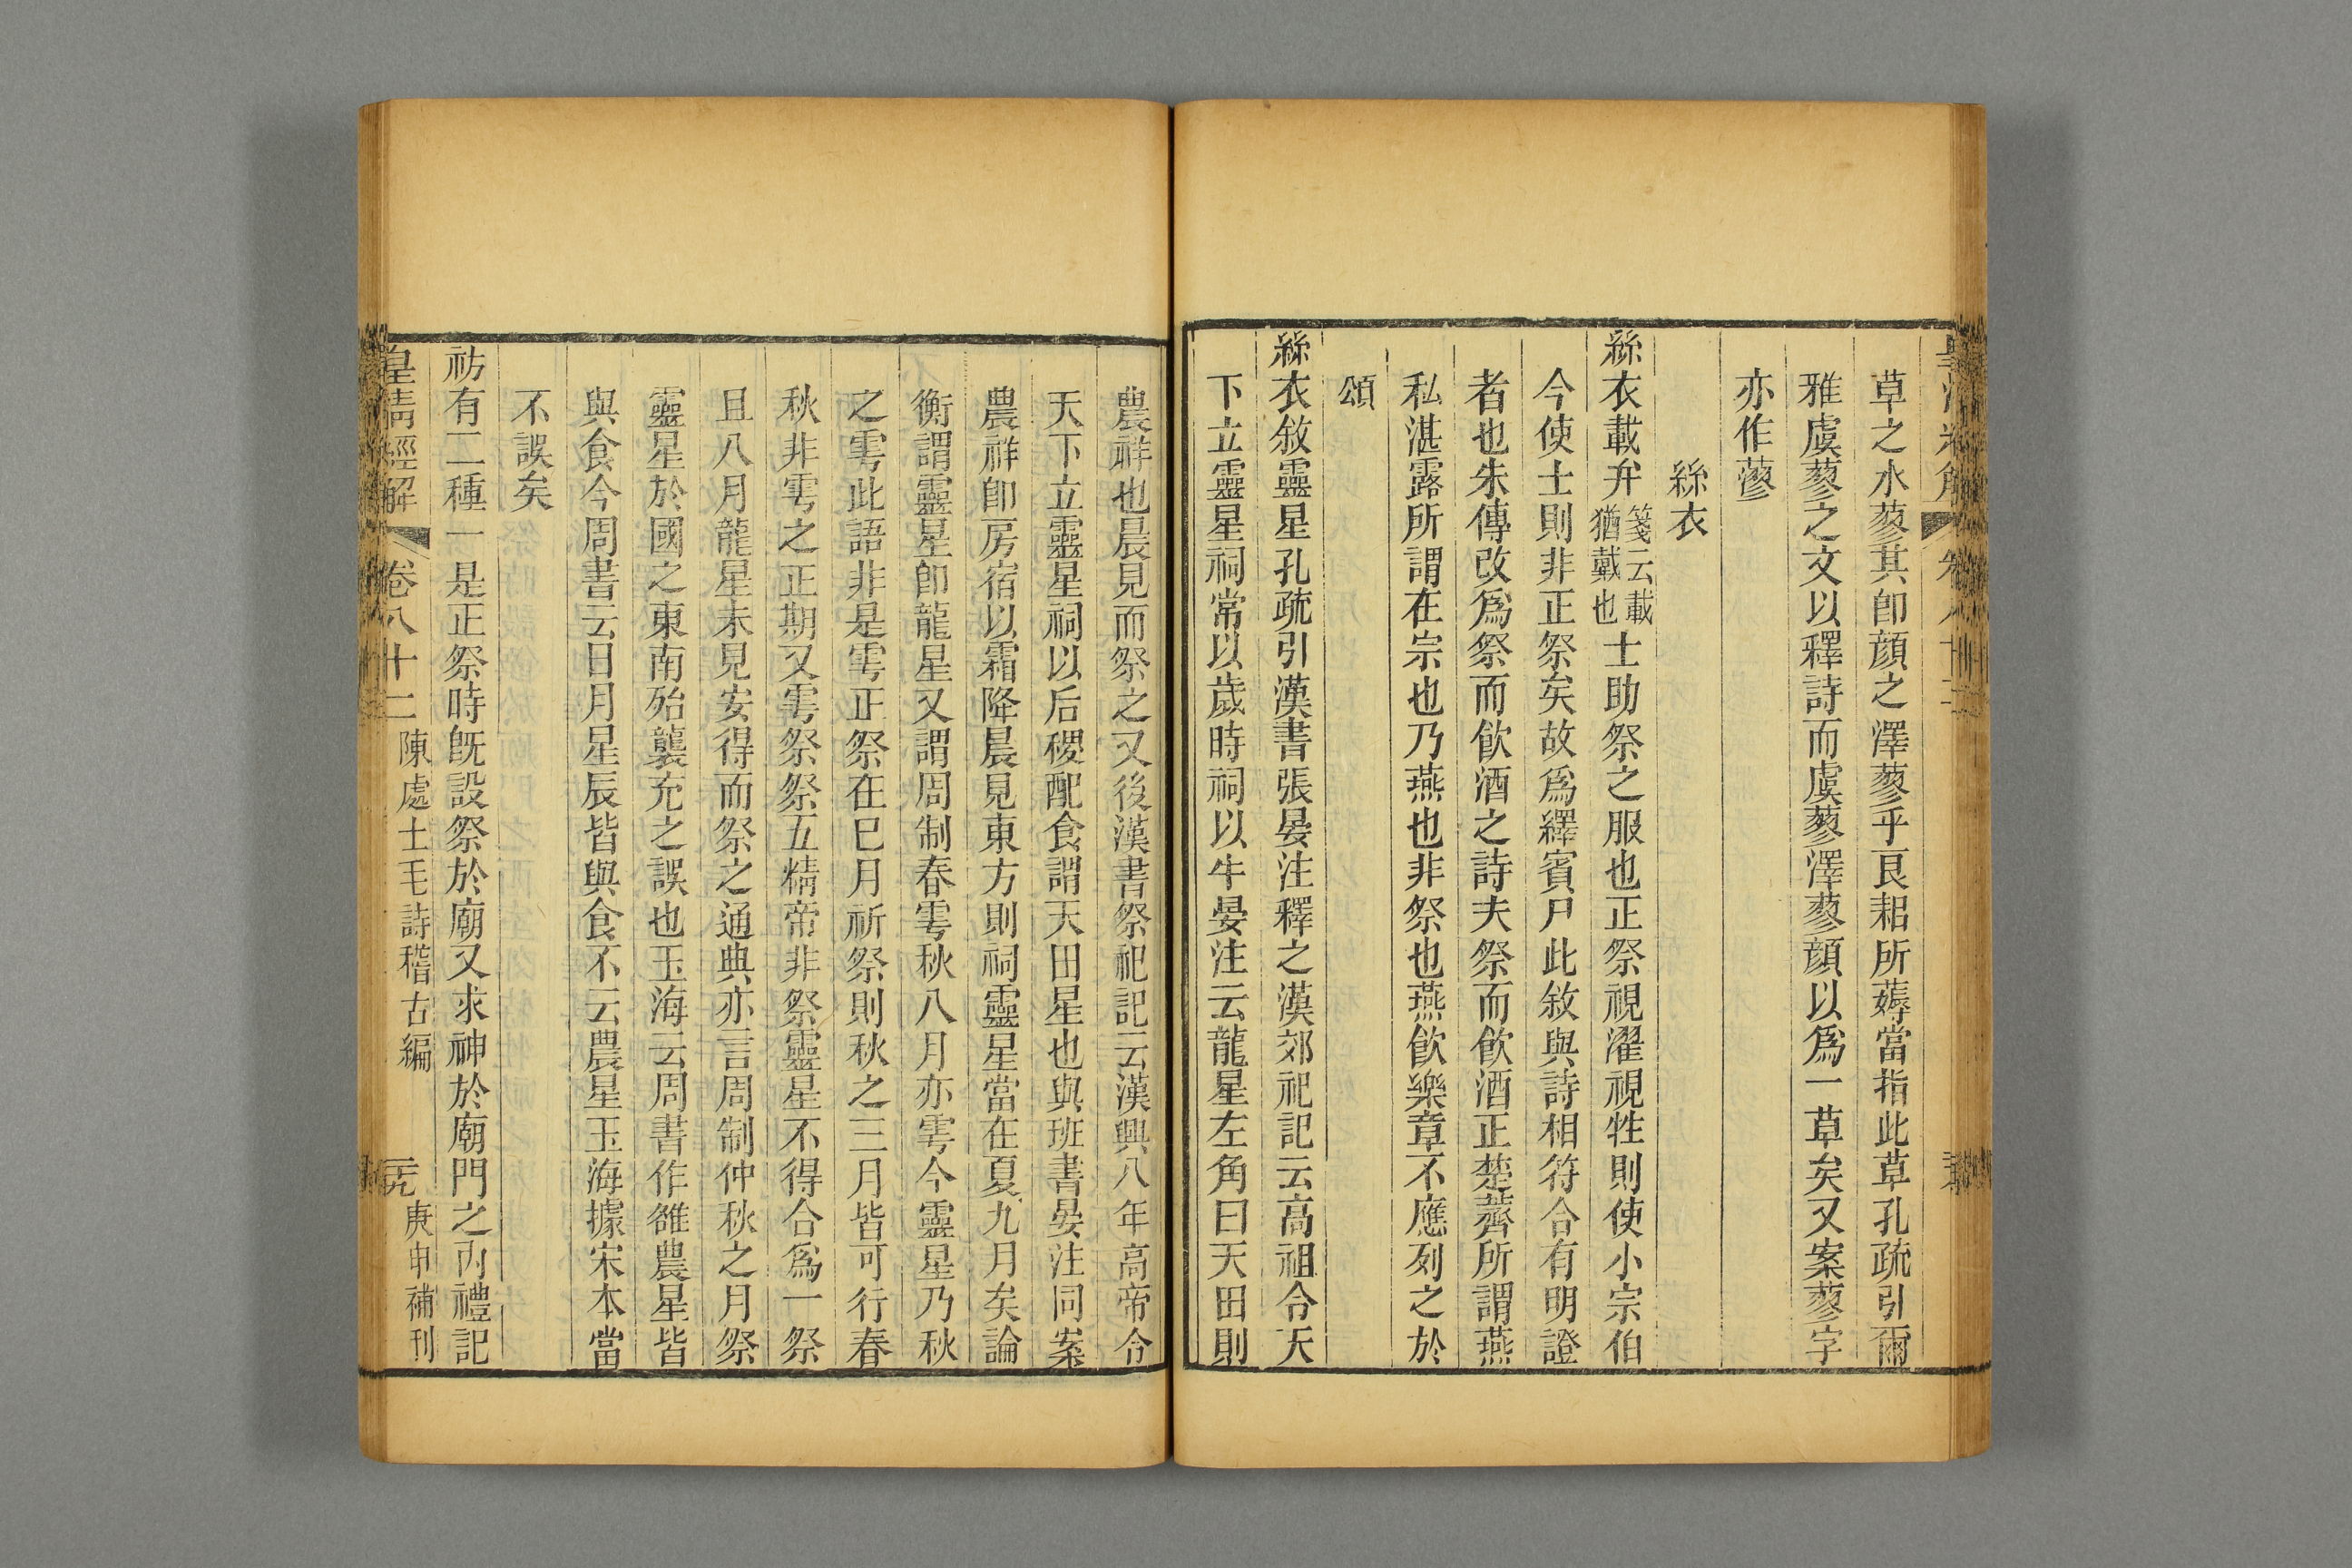 草之水蓼其卽顔之澤蓼乎艮耜所薅當指此草孔疏引爾
雅虞蓼之文以釋詩而虞蓼澤蓼顔以爲一草矣又案蓼字
亦作蔘
絲衣
絲衣載弁箋云載猶戴也士助祭之服也正祭視濯視牲則使小宗伯
今使士則非正祭矣故爲繹賓尸此敘與詩相符合有明證
者也朱傳改爲祭而飮酒之詩夫祭而飮酒正楚薺所謂燕
私湛露所謂在宗也乃燕也非祭也燕飮樂章不應列之於
頌
絲衣敘靈星孔疏引漢書張晏注釋之漢郊祀記云高祖令天
下立靈星祠常以歲時祠以牛晏注云龍星左角曰天田則
農祥也晨見而祭之又後漢書祭祀記云漢興八年高帝令
天下立靈星祠以后稷配食謂天田星也與班書晏注同案
農祥卽房宿以霜降晨見東方則祠靈星當在夏九月矣論
衡謂靈星卽龍星又謂周制春雩秋八月亦雩今靈星乃秋
之雩此語非是雩正祭在巳月祈祭則秋之三月皆可行春
秋非雩之正期又雩祭祭五精帝非祭靈星不得合爲一祭
且八月龍星未見安得而祭之通典亦言周制仲秋之月祭
靈星於國之東南殆襲充之誤也玉海云周書作雒農星皆
與食今周書云日月星辰皆與食不云農星玉海據宋本當
不誤矣
祊有二種一是正祭時旣設祭於廟又求神於廟門之內禮記
皇清經解 卷八十二 陳處士毛詩稽古編 庚申補刊